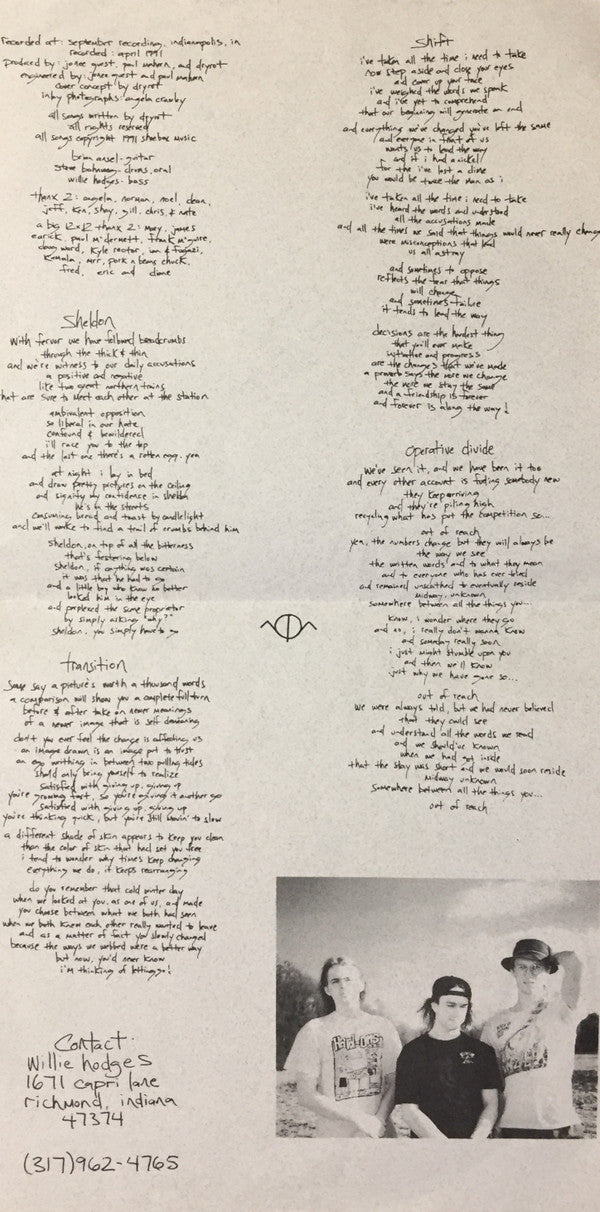 recorded at: september recording, indianapolis, in
recorded: april 1991
produced by: jonee quest, paul mahern, and dryrot
engineered by: jonee quest and paul mahern
cover concept by dryrot
inlay photographs: angela crawley
all songs written by dryrot
all rights reserved
all songs copyright 1991 shoebox music
brian ansel - guitar
steve bohnway - drums, oral
willie hodges - bass
thanx 2: angela, norman, noel, dean,
jeff, ken, shay, gill, chris, & nate
a big 12x12 thanx 2: mary, james
earick, paul mcdermett, frank mcguire,
doug ward, kyle rector, ian & fugazi,
kamala, mrr, pork n beans chuck,
fred, eric and diane
Sheldon
with fervor we have followed breadcrumbs
through the thick & thin
and we're witness to our daily accusations
a positive and negative
like two great northern trains
that are sure to meet each other at the station
ambivalent opposition
so liberal in our hate
confound & bewildered
i'll race you to the top
and the last one there's a rotten egg. yea
at night i lay in bed
and draw pretty pictures on the ceiling
and signify my confidence in sheldon
he's on the streets
consuming bread and toast by candlelight
and we'll awake to find a trail of crumbs behind him
sheldon, on top of all the bitterness
that's festering below
sheldon, if anything was certain
it was that he had to go
and a little boy who knew no better
looked him in the eye
and perplexed the sane proprietor
by simply asking "why?"
sheldon, you simply have to go
transition
Some say a picture's worth a thousand words
a comparison will show you a complete full turn
before & after take on newer meanings
of a newer image that is self damning
don't you ever feel the change is affecting us
an image drawn is an image put to trust
an ego writhing in between two pulling tides
should only bring yourself to realize
satisfied with giving up, giving up
you're growing fast, so you're giving it another go
satisfied with giving up, giving up
you're thinking quick, but you're still movin' to slow
a different shade of skin appears to keep you clean
than the color of skin that had set you free
i tend to wonder why times keep changing
everything we do, it keeps rearranging
do you remember that cold winter day
when we looked at you, as one of us, and made
you choose between what we both had seen
when we both knew each other really wanted to leave
and as a matter of fact you slowly changed
because the ways we webbed were a better way
but now, you'd never know
i'm thinking of letting go!
Contact:
willie hodges
1671 capri lane
richmond, indiana
47374
(317)962-4765
Shift
i've taken all the time i need to take
now step aside and close your eyes
and cover up your face
i've weighed the words we speak
and i've yet to comprehend
that our beginning will generate an end
and everything we've changed you've left the same
and everyone in front of us
wants us to lead the way
and if i had a nickel
for the i've lost a dime
you would be twice the man as i
i've taken all the time i need to take
i've heard the words and understood
all the accusations made
and all the times we said that things would never really change
were misconceptions that lead
us all astray
and sometimes to oppose
reflects the fear that things
will change
and sometimes failure
it tends to lead the way
decisions are the hardest thing
that you'll ever make
initiative and progress
are the changes that we've made
a proverb says the more we change
the more we stay the same
and a friendship is forever
and forever is along the way!
operative divide
We've seen it, and we have been it too
and every other account is fooling somebody new
they keep arriving
and they're piling high
recycling what has put the competition so...
out of reach
yea, the numbers change but they will always be
the way we see
the written words and to what they mean
and to everyone who has ever bled
and remained unscathed to eventually reside
midway. unknown
somewhere between all the things you...
know, i wonder where they go
and no, i really don't wanna know
and someday really soon
i just might stumble upon you
and then we'll know
just why we have gone so...
out of reach
we were always told, but we had never believed
that they could see
and understand all the words we read
and we should've known
when we had got inside
that the stay was short and we would soon reside
midway unknown
somewhere between all the things you...
out of reach